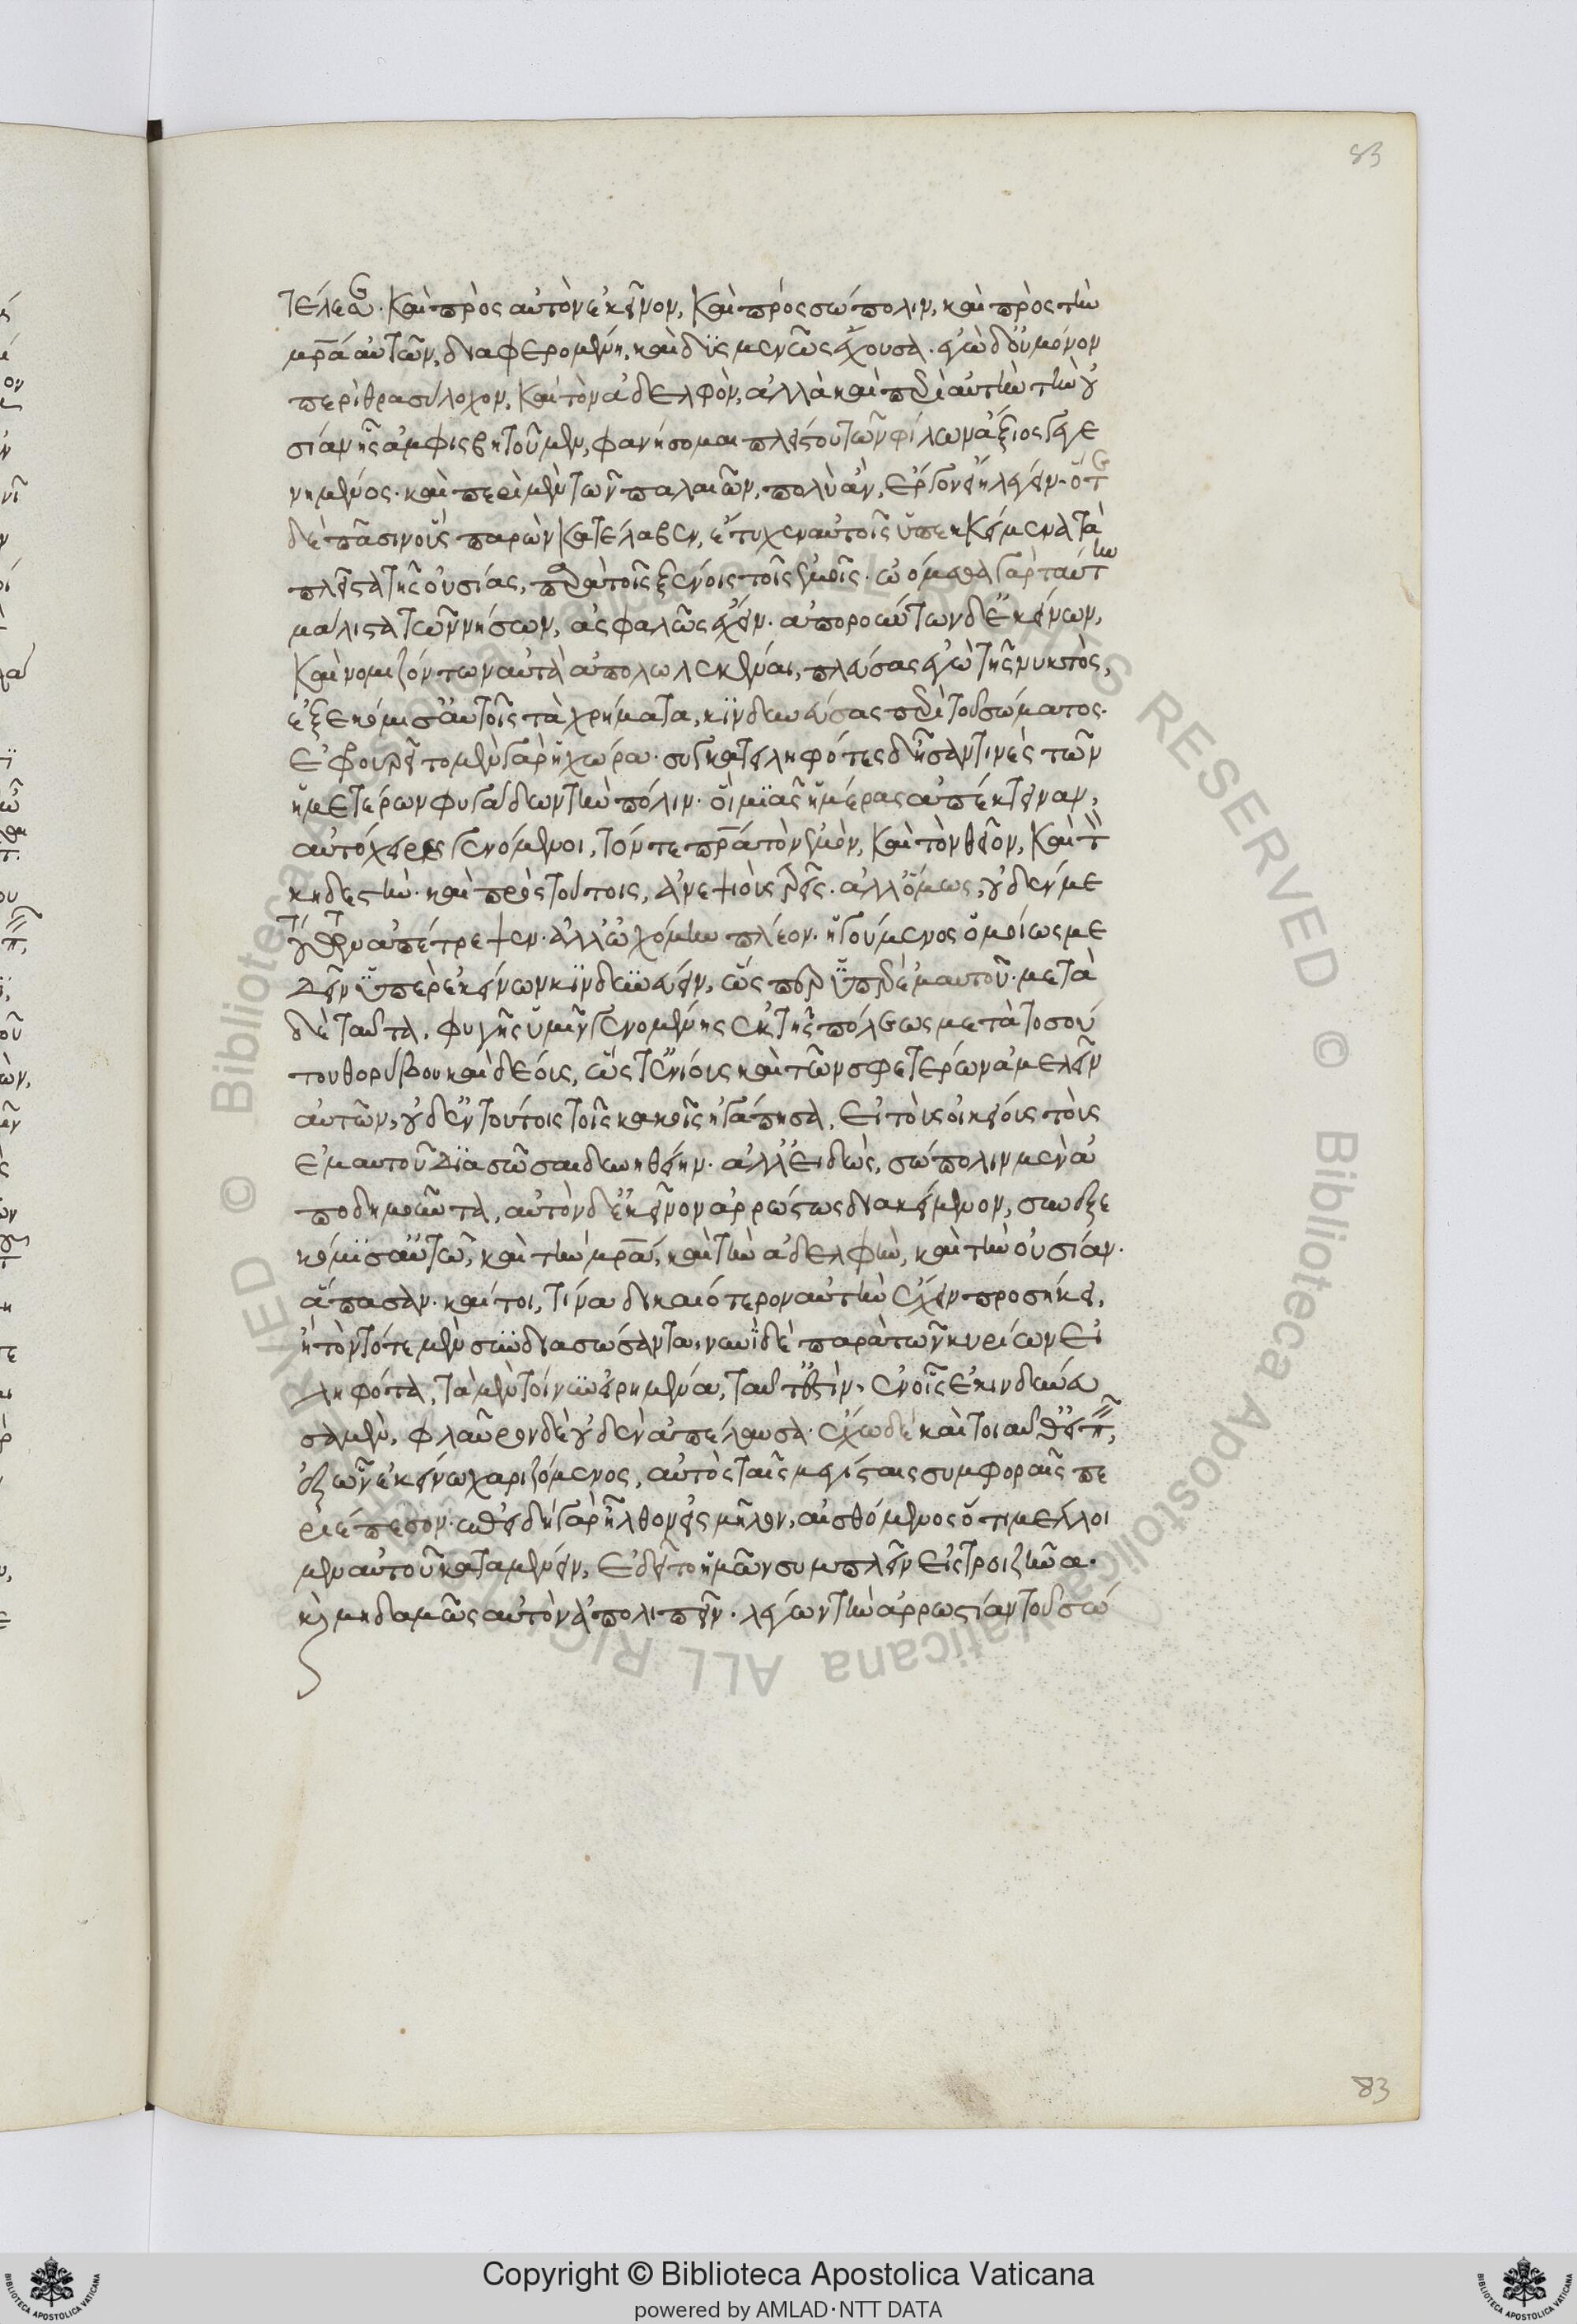 83
τέλεσε. καὶ πρὸς αὐτὸν ἐκεῖνον, καὶ πρὸς σώπολιν, καὶ πρὸς τὴν
μρ̅α αὐτῶν, διαφερομένη, καὶ δυσμενῶς ἔχουσα. ἐγὼ δ' οὐ μόνον
περὶ θρασύλοχον, καὶ τὸν ἀδελφὸν, ἀλλὰ καὶ περὶ αὐτὴν τὴν οὐ
σίαν ἧς ἀμφισβητοῦμεν, φανήσομαι πλείστου τῶν φίλων ἄξιος γεγε
νημένος. καὶ περὶ μὲν τῶν παλαιῶν, πολὺ ἂν, ἔργον εἴη λέγειν. ὅτε
δὲ πασῖνος πάρον κατέλαβεν, ἔτυχεν αὐτοῖς ὑπεκκείμενα τὰ
πλεῖστα τῆς οὐσίας, παρὰ τοῖς ξένοις τοῖς ἐμοῖς. ᾠόμεθα γὰρ ταύτην
μάλιστα τῶν νήσων, ἀσφαλῶς ἔχειν. ἀπορούντων δ' ἐκείνων,
καὶ νομιζόντων αὐτὰ ἀπολωλεκέναι, πλεύσας ἐγὼ τῆς νυκτὸς,
ἐξεκόμισ' αὐτοῖς τὰ χρήματα, κινδυνεύσας περὶ τοῦ σώματος.
ἐφρουρεῖτο μὲν γὰρ ἡ χώρα. συγκατειληφότες δ' ἦσάν τινὲς τῶν
ἡμετέρων φυγάδων τὴν πόλιν. οἳ μιᾶς ἡμέρας ἀπέκτειναν,
αὐτόχειρες γενόμενοι, τόν τε πρ̅α τὸν ἐμὸν, καὶ τὸν θεῖον, καὶ τὸν
κηδεστὴν. καὶ πρὸς τούτοις, ἀνεψιοὺς τρεῖς. ἀλλ' ὅμως, οὐδέν με
τούτων ἀπέτρεψεν. ἀλλ' ᾠχόμην πλέων. ἡγούμενος ὁμοίως με
δεῖν ὑπὲρ ἐκείνων κινδυνεύειν, ὥσπερ ὑπὲρ ἐμαυτοῦ. μετὰ
δὲ ταῦτα, φυγῆς ὑμῖν γενομένης ἐκ τῆς πόλεως μετὰ τοσού
του θορύβου καὶ δέους, ὥστ' ἐνίους καὶ τῶν σφετέρων ἀμελεῖν
αὐτῶν, οὐδ' ἐν τούτοις τοῖς κακοῖς ἠγάπησα, εἰ τοὺς οἰκείους τοὺς
ἐμαυτοῦ διασῶσαι δυνηθείην. ἀλλ' εἰδὼς, σώπολιν μὲν ἀ
ποδημοῦντα, αὐτὸν δ' ἐκεῖνον ἀρρώστως διακείμενον, συνεξε
κόμισ' αὐτῷ, καὶ τὴν μρ̅α, καὶ τὴν ἀδελφὴν, καὶ τὴν οὐσίαν.
ἅπασαν. καίτοι, τίνα δικαιότερον αὐτὴν ἔχειν προσήκει,
ἢ τὸν τότε μὲν συνδιασώσαντα, νυνὶ δὲ παρὰ τῶν κυρίων εἰ
ληφότα, τὰ μὲν τοίνυν εἰρημένα, ταῦτ' ἐστὶν, ἐν οἷς ἐκινδύνευ
σα μὲν, φλαῦρον δὲ οὐδὲν ἀπέλαυσα. ἔχω δὲ καὶ τοιαῦτ' εἰπεῖν,
ἐξ ὧν ἐκείνῳ χαριζόμενος, αὐτὸς ταῖς μεγίσταις συμφοραῖς πε
ριέπεσον. ἐπειδὴ γὰρ ἤλθομεν εἰς μῆλον, αἰσθόμενος ὅτι μέλλοι
μεν αὐτοῦ καταμένειν, ἐδεῖτο ἡμῶν συμπλεῖν εἰς τροιζῆνα.
καὶ μηδαμῶς αὐτὸν ἀπολιπεῖν. λέγων τὴν ἀρρωστίαν τοῦ σώ
83
Copyright © Biblioteca Apostolica Vaticana
powered by AMLAD·NTT DATA